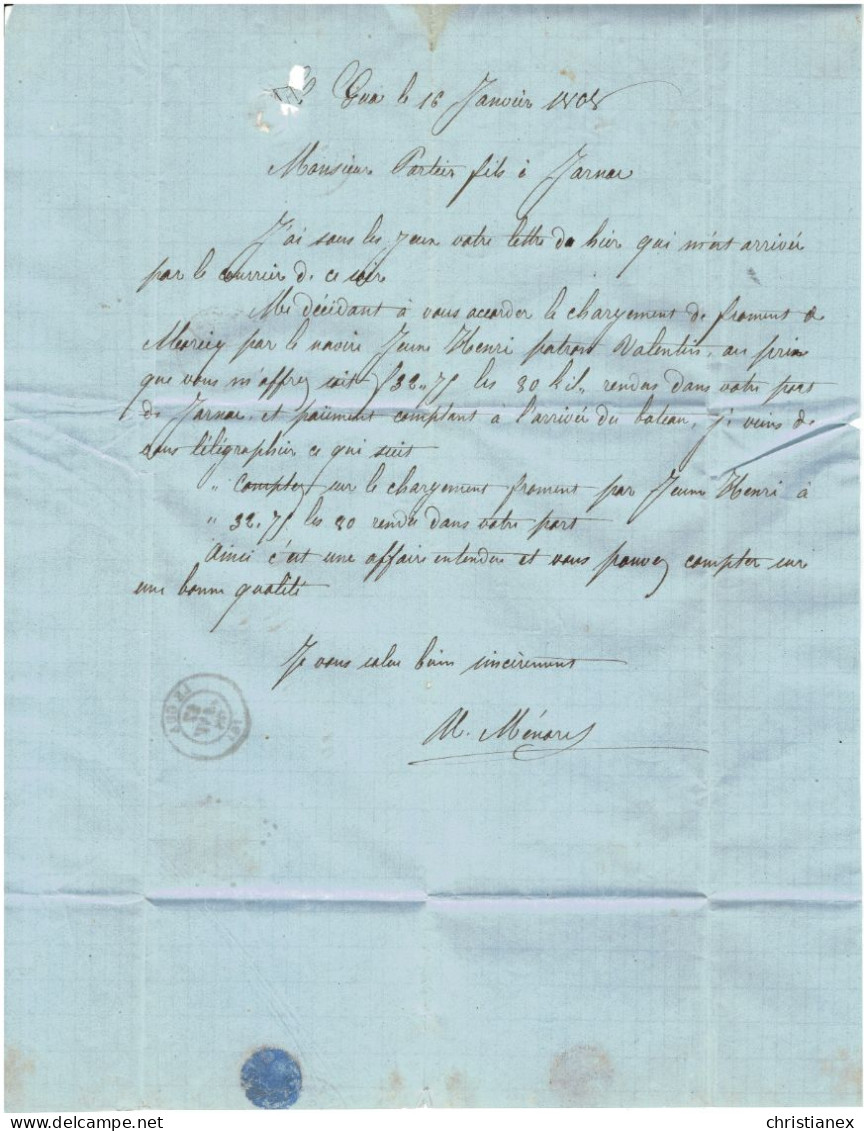 Le Gua le 16 Janvier 1868
Monsieur Portier fils à Jarnac
J'ai sous les yeux votre lettre du hier qui m'est arrivée
par le courrier de ce soir
Me décidant à vous accorder le chargement de froment de
par le navire Jeune Henri patron Valentin, au prix
que vous m'offrez soit f 32.,75 les 80 kil,, rendus dans votre port
de Jarnac, et paiement comptant à l'arrivée du bateau, je viens de
vous télégraphier ce qui suit
" Comptez sur le chargement froment par Jeune Henri à
" 32.75 les 80 rendu dans votre port
Ainsi c'est une affaire entendue et vous pouvez compter sur
une bonne qualité
Je vous salue bien sincèrement
M. Ménard
LE GUA
christianex